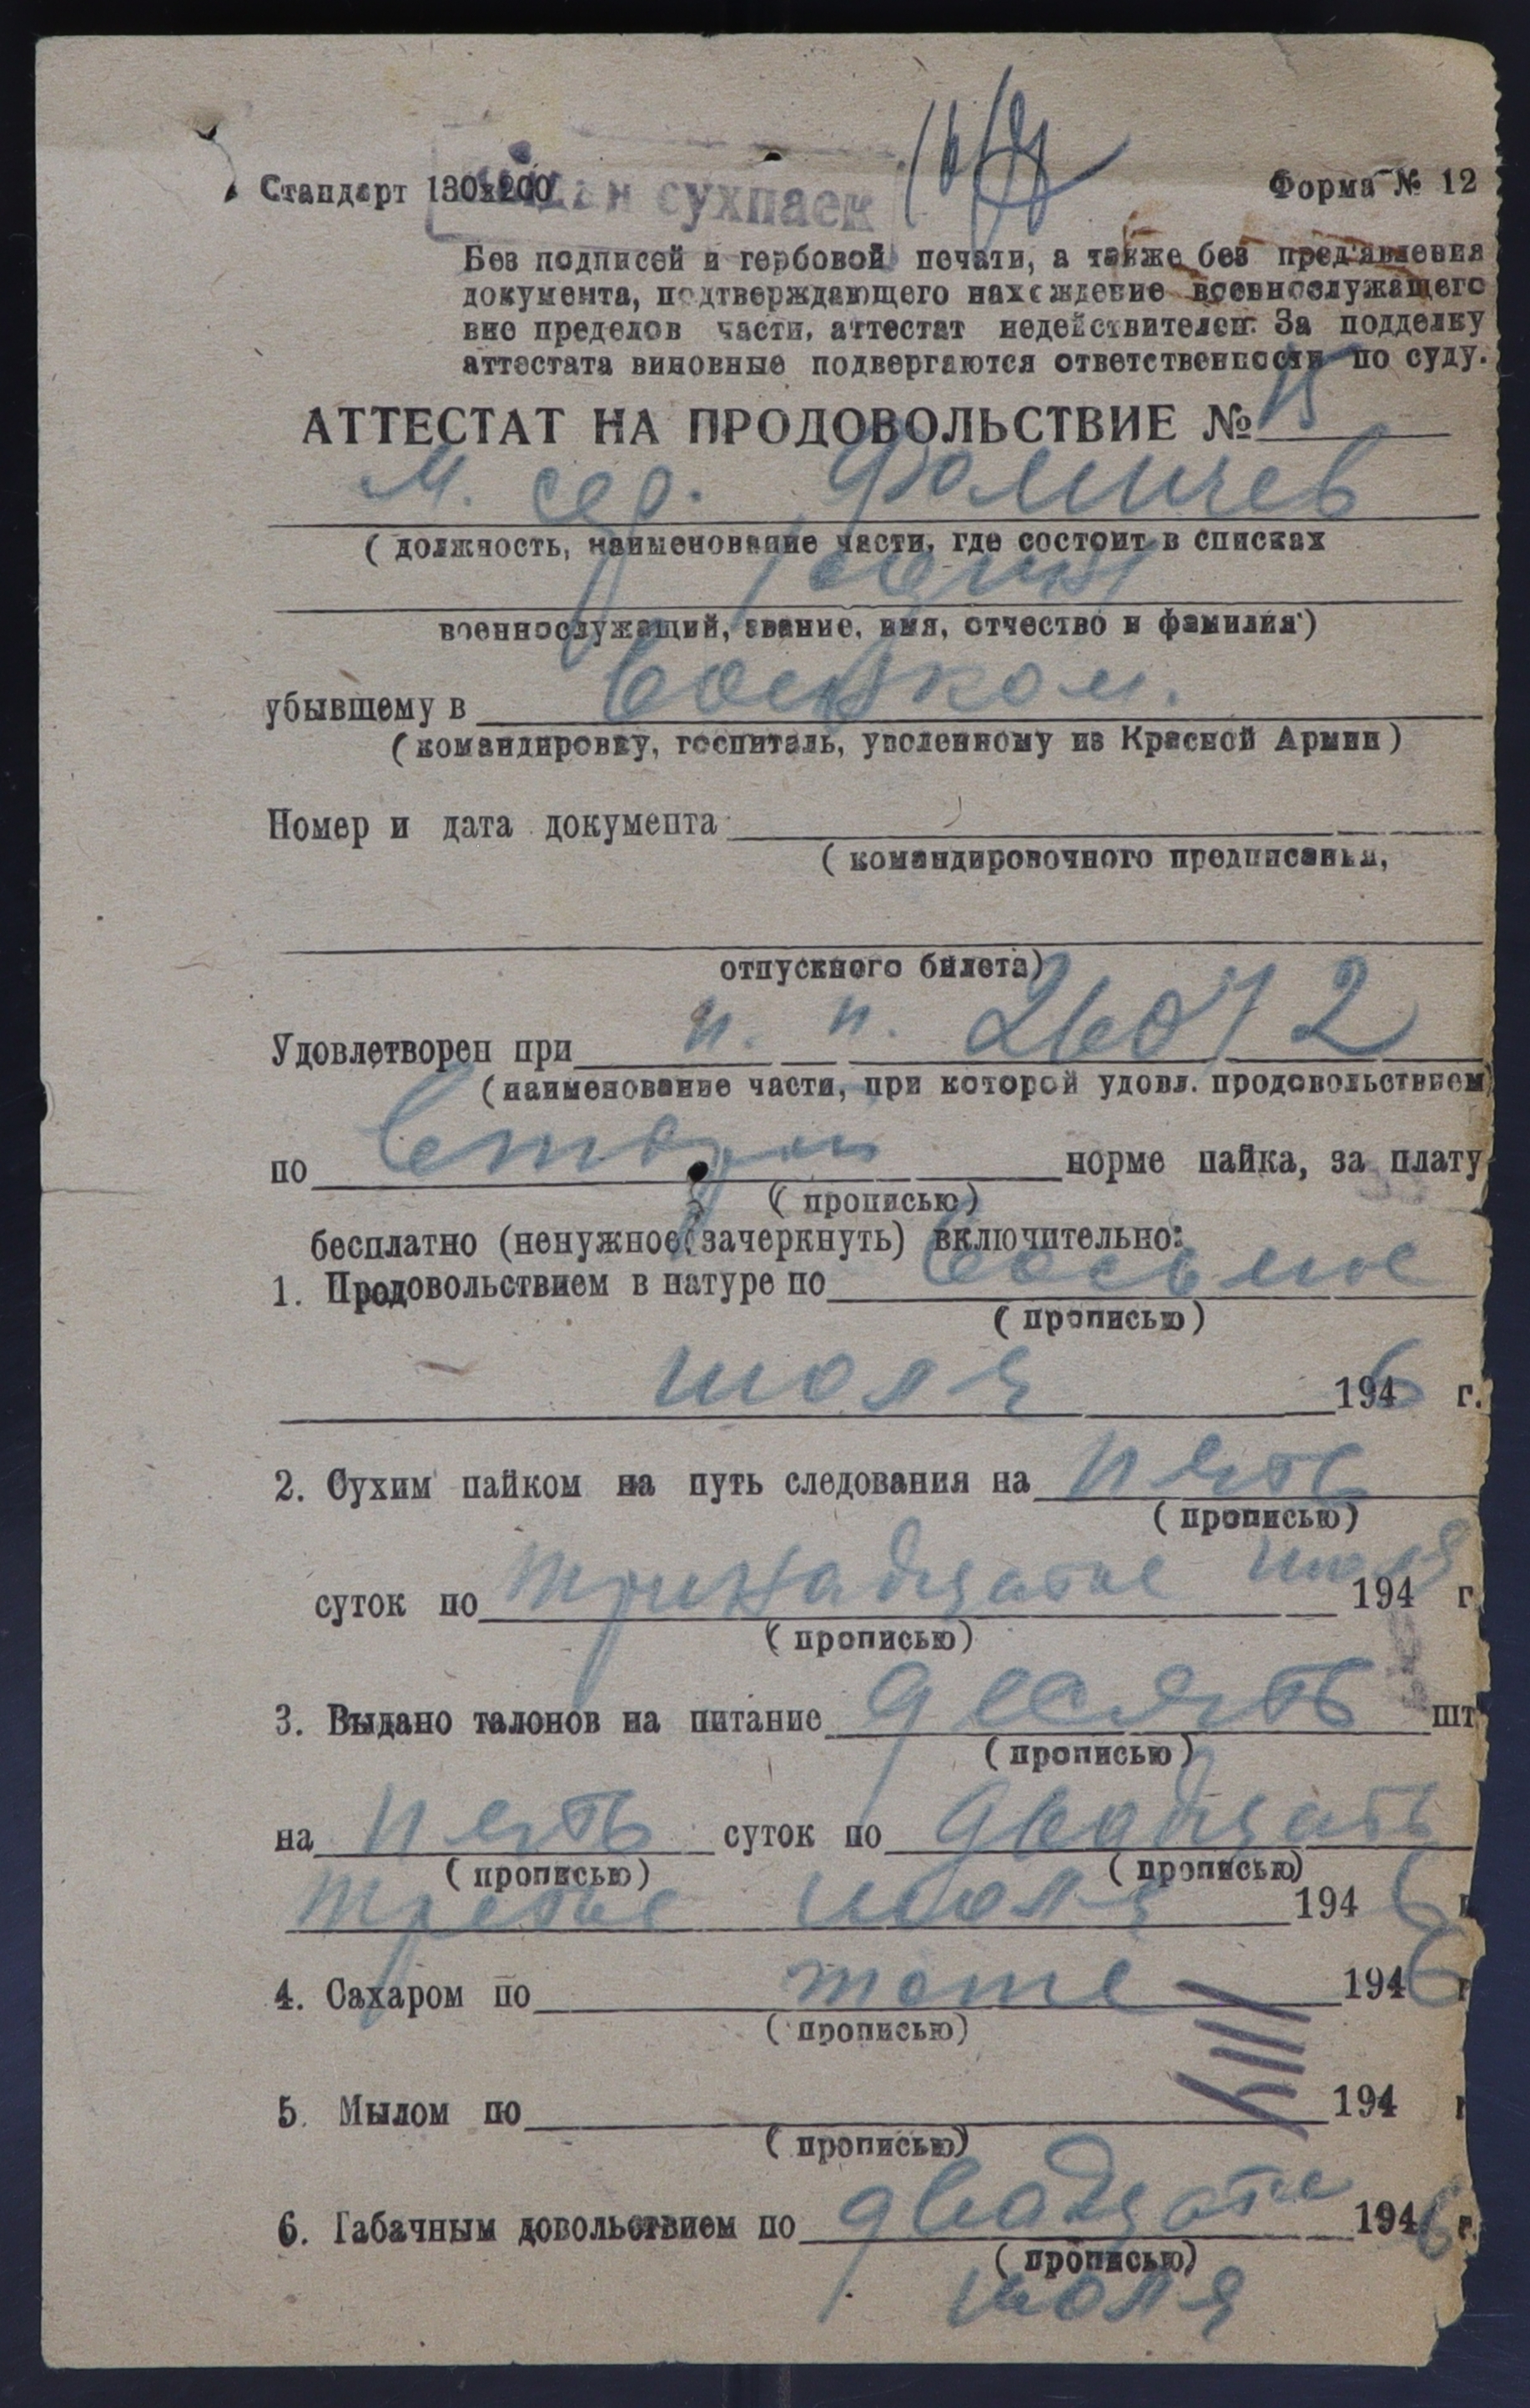 Стандарт 130х200
сухпаек
Форма № 12
Без подписей и гербовой печати, а также без пред'явления
документа, подтверждающего нахождение военнослужащего
вне пределов части, аттестат недействителен. За подделку
аттестата виновные подвергаются ответственности по суду.
АТТЕСТАТ НА ПРОДОВОЛЬСТВИЕ № 15
М. сер. Фомичев
( должность, наименование части, где состоит в списках
военнослужащий, звание, имя, отчество и фамилия)
убывшему в
( командировку, госпиталь, уволенному из Красной Армии )
Номер и дата документа
( командировочного предписанья,
отпускного билета)
Удовлетворен при п. п. 26072
(наименование части, при которой удовл. продовольствием)
по второй норме пайка, за плату
( прописью )
бесплатно (ненужное зачеркнуть) включительно:
1. Продовольствием в натуре по восьмое
( прописью )
июля 1946 г.
2. Сухим пайком на путь следования на пять
( прописью )
суток по тринадцатое июля 194 г.
( прописью )
3. Выдано талонов на питание десять шт
( прописью )
на пять суток по двадцать
( прописью ) ( прописью)
третье июля 1946 г
4. Сахаром по тоже 1946 г
( прописью )
5. Мылом по 194 г
( прописью)
6. Табачным довольствием по двадцатое 1946 г.
( прописью)
июля